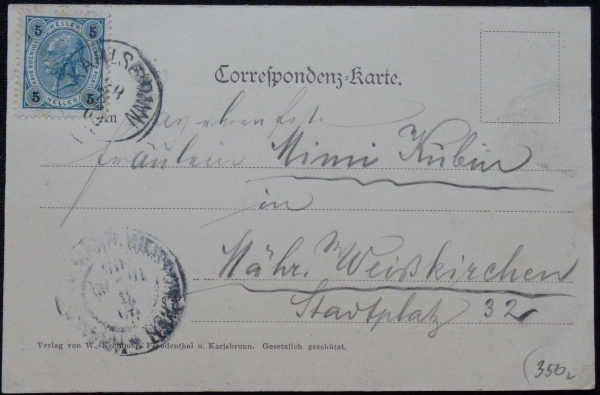 5 HELLER 5
5 HELLER 5
Correspondenz-Karte.
Fräulein Mimi Kubin
in
Mähr. Weißkirchen
Stadtplatz 32
Verlag von W. Krommer, Freudenthal u. Karlsbrunn. Gesetzlich geschützt.
350